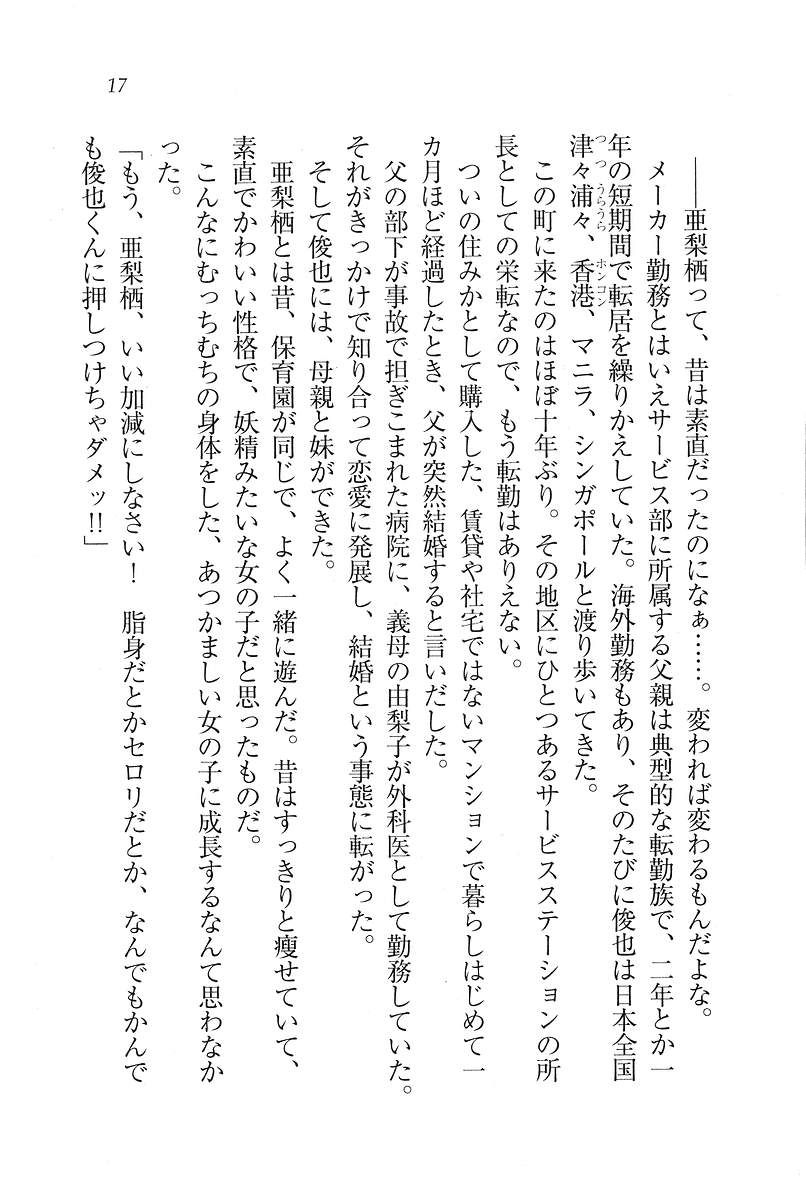 17
――亜梨栖って、昔は素直だったのになぁ……。変われば変わるもんだよな。
メーカー勤務とはいえサービス部に所属する父親は典型的な転勤族で、二年とか一
年の短期間で転居を繰りかえしていた。海外勤務もあり、そのたびに俊也は日本全国
津々浦々、香港、マニラ、シンガポールと渡り歩いてきた。
つつうらうら
ホンコン
この町に来たのはほぼ十年ぶり。その地区にひとつあるサービスステーションの所
長としての栄転なので、もう転勤はありえない。
ついの住みかとして購入した、賃貸や社宅ではないマンションで暮らしはじめて一
カ月ほど経過したとき、父が突然結婚すると言いだした。
父の部下が事故で担ぎこまれた病院に、義母の由梨子が外科医として勤務していた。
それがきっかけで知り合って恋愛に発展し、結婚という事態に転がった。
そして俊也には、母親と妹ができた。
亜梨栖とは昔、保育園が同じで、よく一緒に遊んだ。昔はすっきりと痩せていて、
素直でかわいい性格で、妖精みたいな女の子だと思ったものだ。
こんなにむっちむちの身体をした、あつかましい女の子に成長するなんて思わなか
った。
「もう、亜梨栖、いい加減にしなさい!　脂身だとかセロリだとか、なんでもかんで
も俊也くんに押しつけちゃダメッ!!」